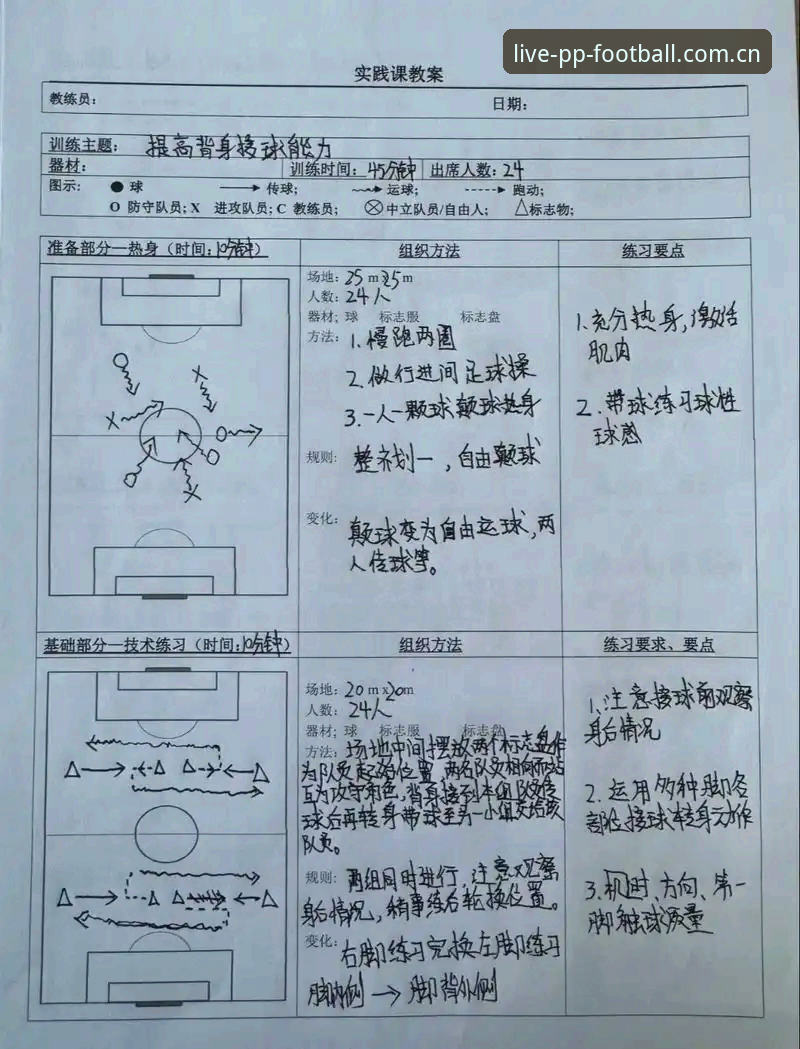 live-pp-football.com.cn
实践课教案
教练员： 日期：
训练主题： 提高背身接球能力
器材： 训练时间：45分钟 出席人数：24
图示： 球 传球； 运球； 跑动；
O 防守队员；X 进攻队员；C 教练员； 中立队员/自由人； 标志物；
准备部分—热身（时间：10分钟） 组织方法 练习要点
场地：25 m×25m
人数：24人
器材；球 标志服 标志盘
方法：1.慢跑两圈
2.做行进间足球操
3.一人一颗球颠球热身
规则： 整齐划一，自由颠球
变化： 颠球变为自由运球，两
人传球等。
1.充分热身，激活
肌肉
2.带球练习球性
球感
基础部分—技术练习（时间：10分钟） 组织方法 练习要求、要点
场地：20 m x20m
人数：24人
器材；球 标志服 标志盘
方法：场地中间摆放两个标志盘作
为队员起始位置，两名队员相向而站
互为攻守角色，背身接到本组队员传
球后再转身带球至另一小组交给该
队员。
规则： 两组同时进行，注意观察
身后情况，稍事练后轮换位置。
变化： 右脚练习完换左脚练习
脚内侧→脚背外侧
1.注意接球前观察
身后情况
2.运用多种脚各
部位接球转身动作
3.机时、方向、第一
脚触球质量